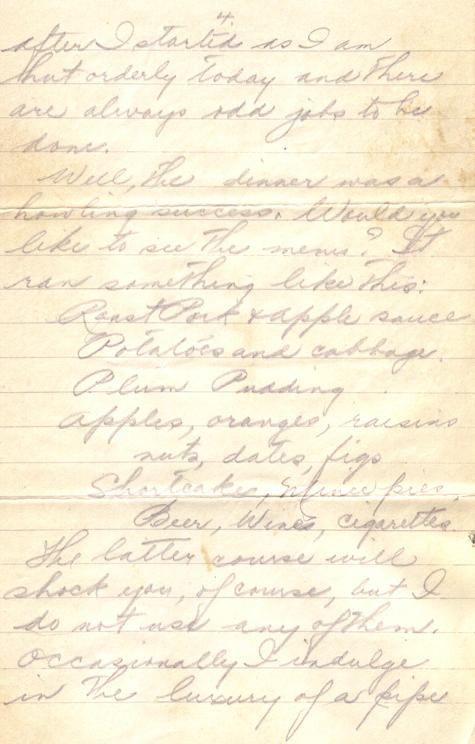 4.
after I started as I am
hut orderly today and there
are always odd jobs to be
done.
Well, the dinner was a
howling success. Would you
like to see the menu? It
ran something like this:
Roast Pork & apple sauce
Potatoes and cabbage.
Plum Pudding
apples, oranges, raisins
nuts, dates, figs
Shortcake, Mince pies,
Beer, Wines, cigarettes.
The latter course will
shock you, of course, but I
do not use any of them.
Occasionally I indulge
in the luxury of a pipe